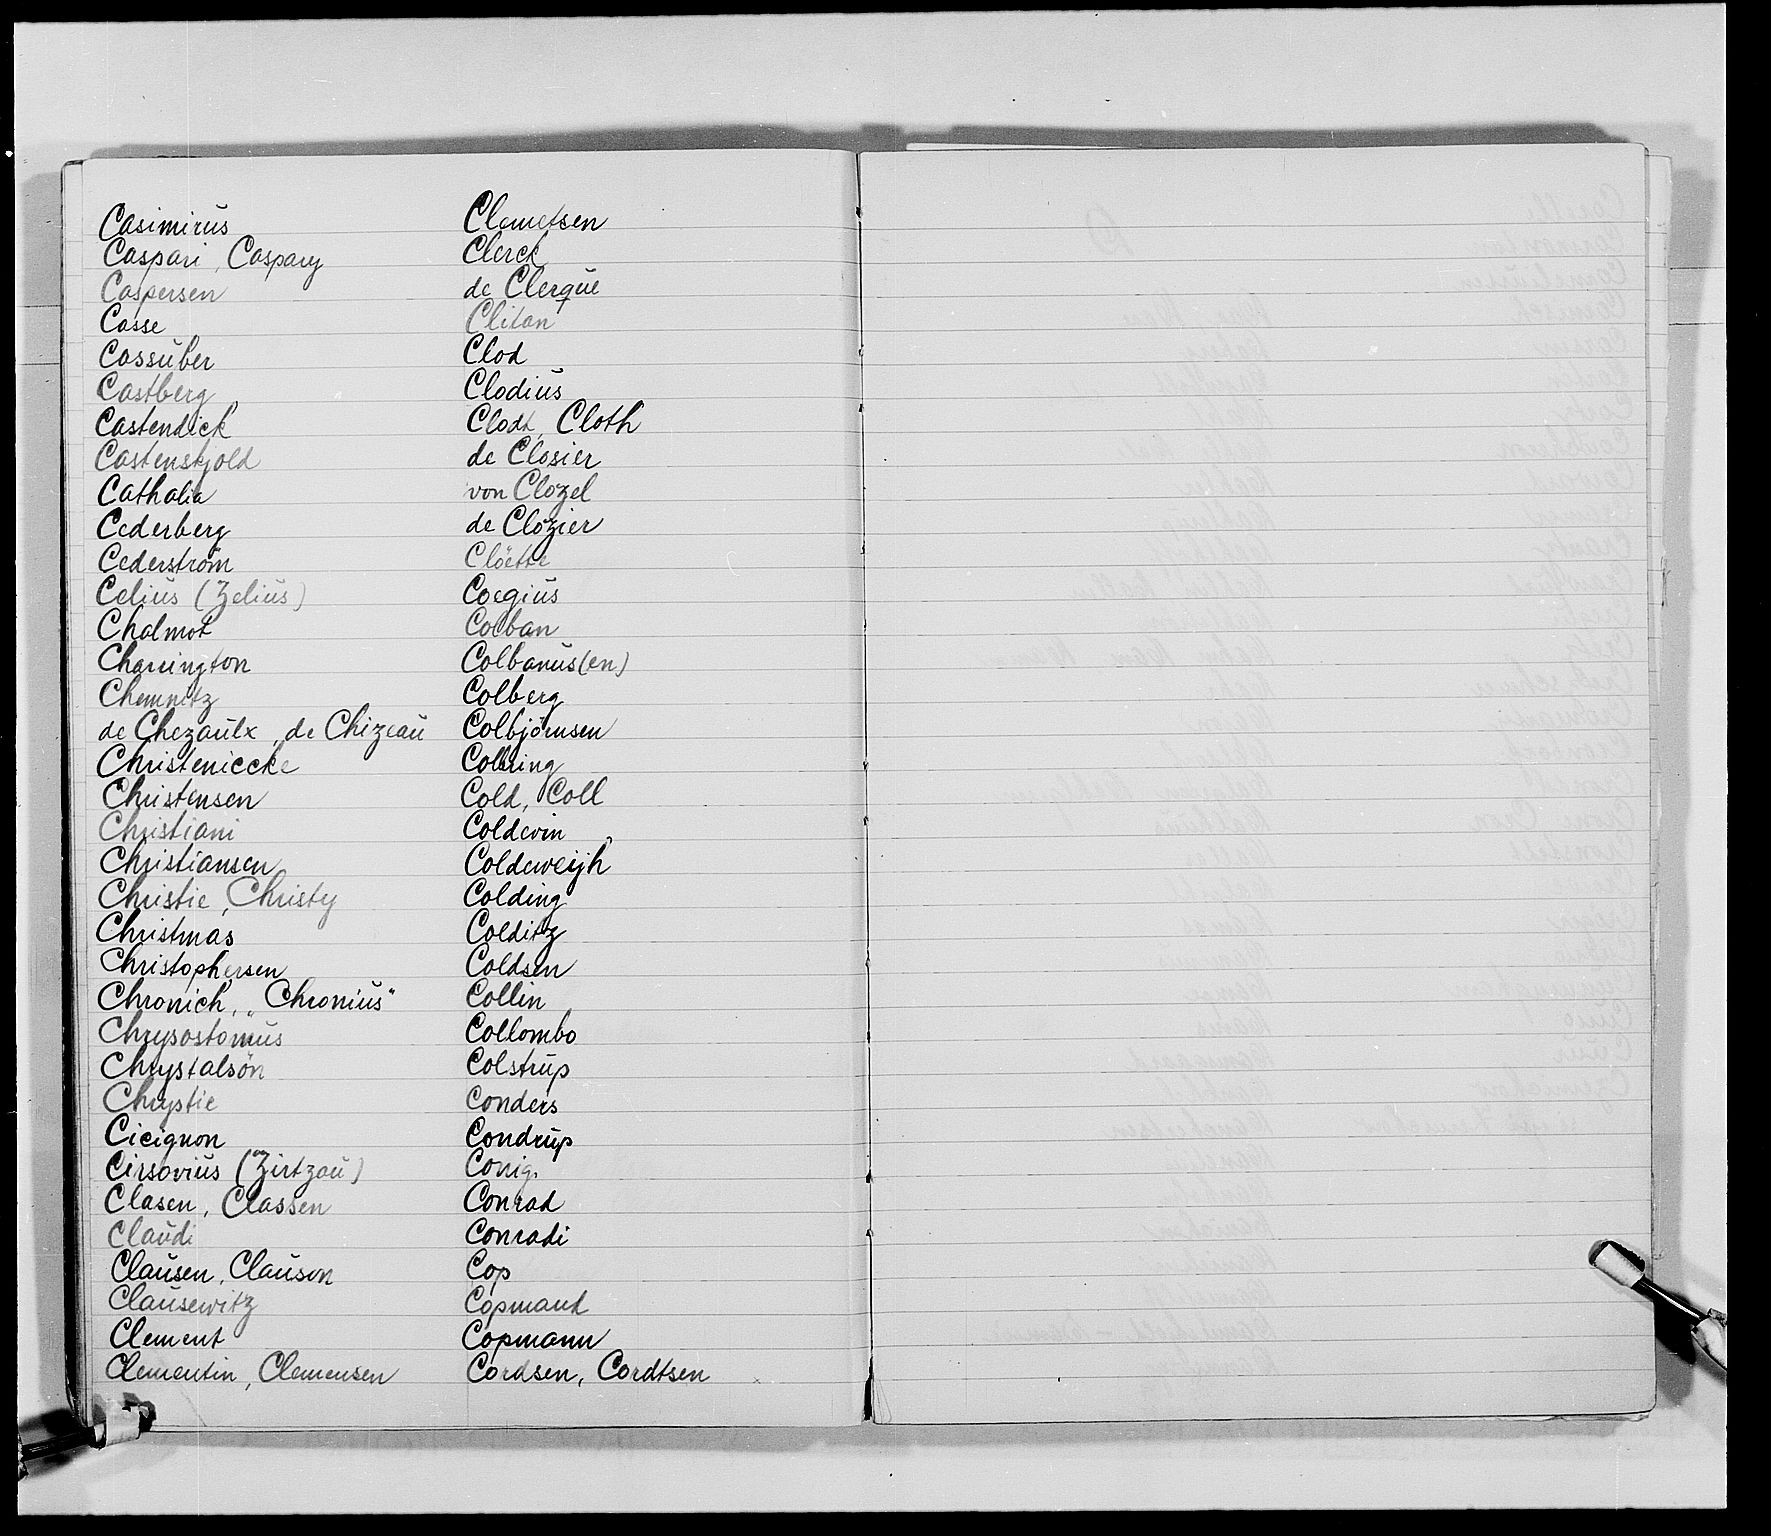 Casimirus
Caspari, Caspary
Caspersen
Casse
Cassuber
Castberg
Castendick
Castenskjold
Cathalia
Cederberg
Cederström
Celius (Zelius)
Chalmot
Charrington
Chemnitz
de Chezaulx, de Chizeau
Christeniecke
Christensen
Christiani
Christiansen
Christie, Christy
Christmas
Christophersen
Chronich, „Chronius“
Chrysostomus
Chrystalsön
Chrystie
Cicignon
Cirsovius (Zirtzou)
Clasen, Classen
Claudi
Clausen, Clauson
Clausewitz
Clement
Clementin, Clemensen
Clemetsen
Clerck
de Clerque
Clitan
Clod
Clodius
Clodt, Cloth
de Closier
von Clozel
de Clozier
Clöette
Coegius
Colban
Colbanus(en)
Colberg
Colbjörnsen
Colbring
Cold, Coll
Coldevin
Coldeweijh
Colding
Colditz
Coldsen
Collin
Collombo
Colstrup
Conders
Condrup
Conig.
Conrad
Conradi
Cop
Copmand
Copmann
Cordsen, Cordtsen